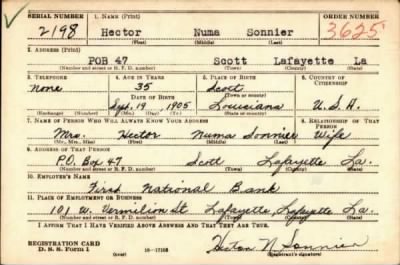 SERIAL NUMBER 1. NAME (Print) ORDER NUMBER
2198 Hector Numa Sonnier 3625
(First) (Middle) (Last)
2. ADDRESS (Print)
POB 47 Scott Lafayette La
(Number and street or R. F. D. number) (Town) (County) (State)
3. TELEPHONE 4. AGE IN YEARS 5. PLACE OF BIRTH 6. COUNTRY OF CITIZENSHIP
none 35 Scott
DATE OF BIRTH (Town or county)
Sept. 19 1905 Louisiana U.S.A.
(Exchange) (Number) (Mo.) (Day) (Yr.) (State or country)
7. NAME OF PERSON WHO WILL ALWAYS KNOW YOUR ADDRESS 8. RELATIONSHIP OF THAT PERSON
Mrs. Hector Numa Sonnier Wife
(Mr., Mrs., Miss) (First) (Middle) (Last)
9. ADDRESS OF THAT PERSON
P.O. Box 47 Scott Lafayette La.
(Number and street or R. F. D. number) (Town) (County) (State)
10. EMPLOYER'S NAME
First National Bank
11. PLACE OF EMPLOYMENT OR BUSINESS
101 W. Vermilion St Lafayette, Lafayette, La.
(Number and street or R. F. D. number) (Town) (County) (State)
I AFFIRM THAT I HAVE VERIFIED ABOVE ANSWERS AND THAT THEY ARE TRUE.
REGISTRATION CARD
D. S. S. Form 1 (over) 16—17105 Hector N Sonnier
(Registrant's signature)